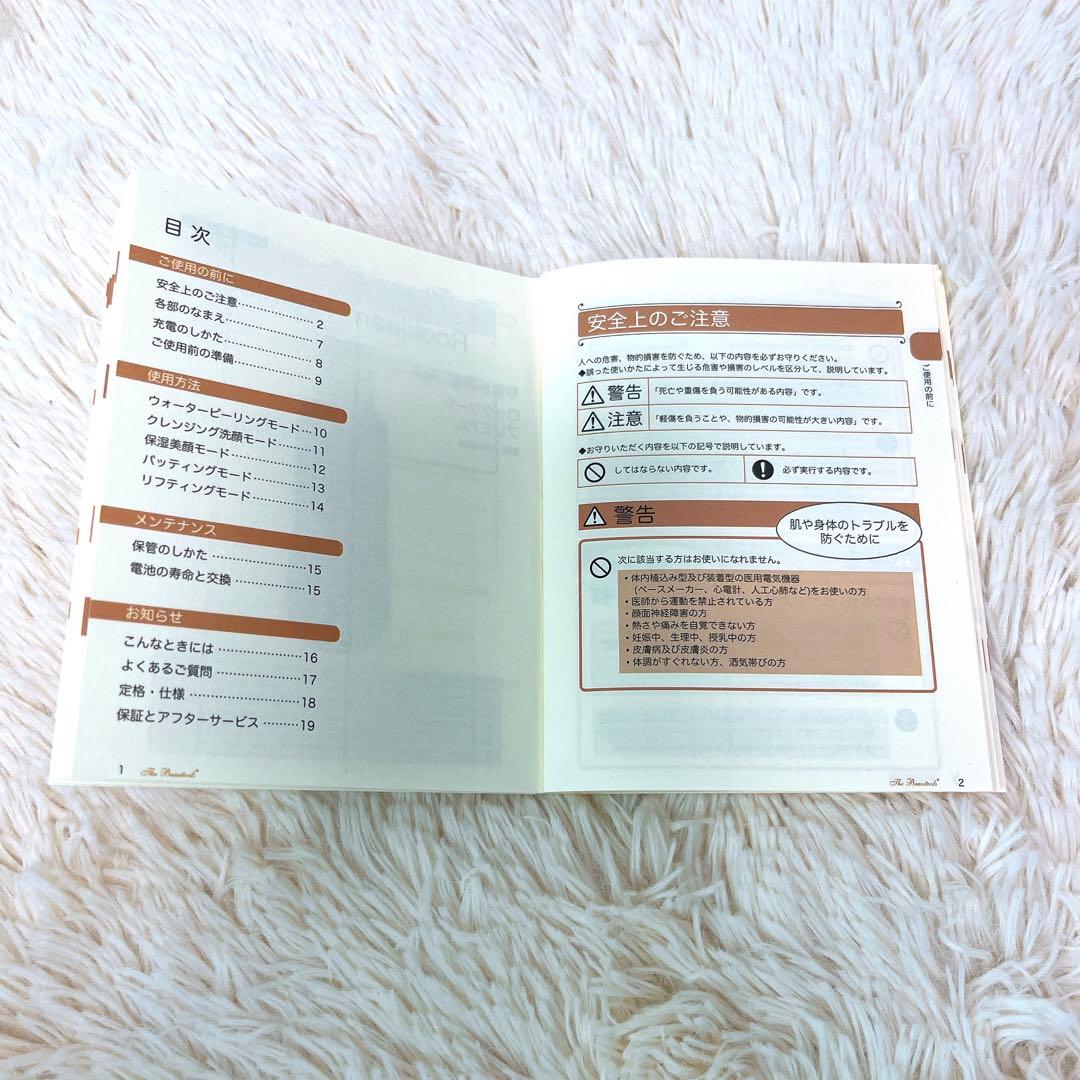 目次
ご使用の前に
安全上のご注意…………………2
各部のなまえ…………………7
充電のしかた…………………8
ご使用前の準備…………………9
使用方法
ウォーターピーリングモード…10
クレンジング洗顔モード………11
保湿美顔モード………………12
パッティングモード…………13
リフティングモード…………14
メンテナンス
保管のしかた…………………15
電池の寿命と交換……………15
お知らせ
こんなときには………………16
よくあるご質問………………17
定格・仕様……………………18
保証とアフターサービス………19
1
The Beautools®
安全上のご注意
人への危害、物的損害を防ぐため、以下の内容を必ずお守りください。
◆誤った使いかたによって生じる危害や損害のレベルを区分して、説明しています。
警告 「死亡や重傷を負う可能性がある内容」です。
注意 「軽傷を負うことや、物的損害の可能性が大きい内容」です。
◆お守りいただく内容を以下の記号で説明しています。
してはならない内容です。 必ず実行する内容です。
警告
肌や身体のトラブルを
防ぐために
次に該当する方はお使いになれません。
・体内植込み型及び装着型の医用電気機器
(ペースメーカー、心電計、人工心肺など)をお使いの方
・医師から運動を禁止されている方
・顔面神経障害の方
・熱さや痛みを自覚できない方
・妊娠中、生理中、授乳中の方
・皮膚病及び皮膚炎の方
・体調がすぐれない方、酒気帯びの方
ご使用の前に
The Beautools®
2